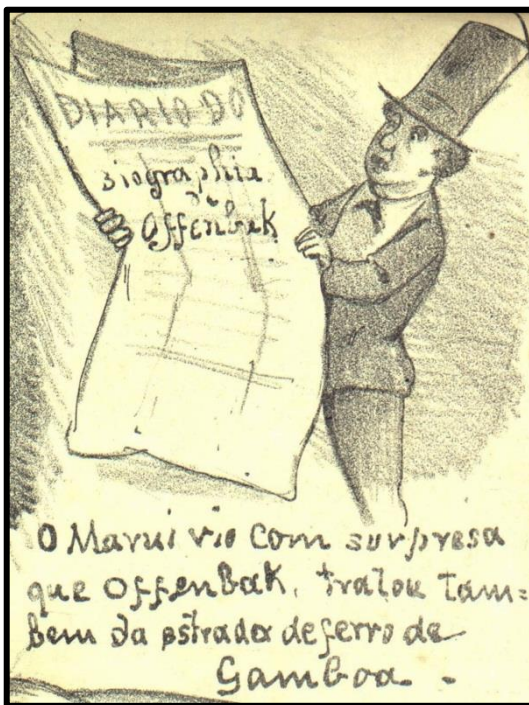 DIARIO DO
Biographia
de
Offenbak
O Marui vio com surpresa
que Offenbak, tratou tam=
bem da estrada de ferro de
Gamboa. -